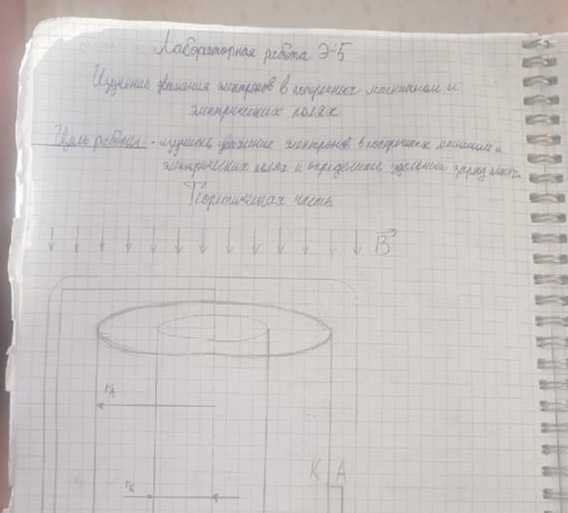 Лабораторная работа Э-5
Изучение движения электронов в поперечных магнитном и
электрических полях
Цель работы - изучение движение электронов в поперечных магнитном и
электрических полях и определение удельный заряд
Теоретическая часть
B
rA
rк
K A